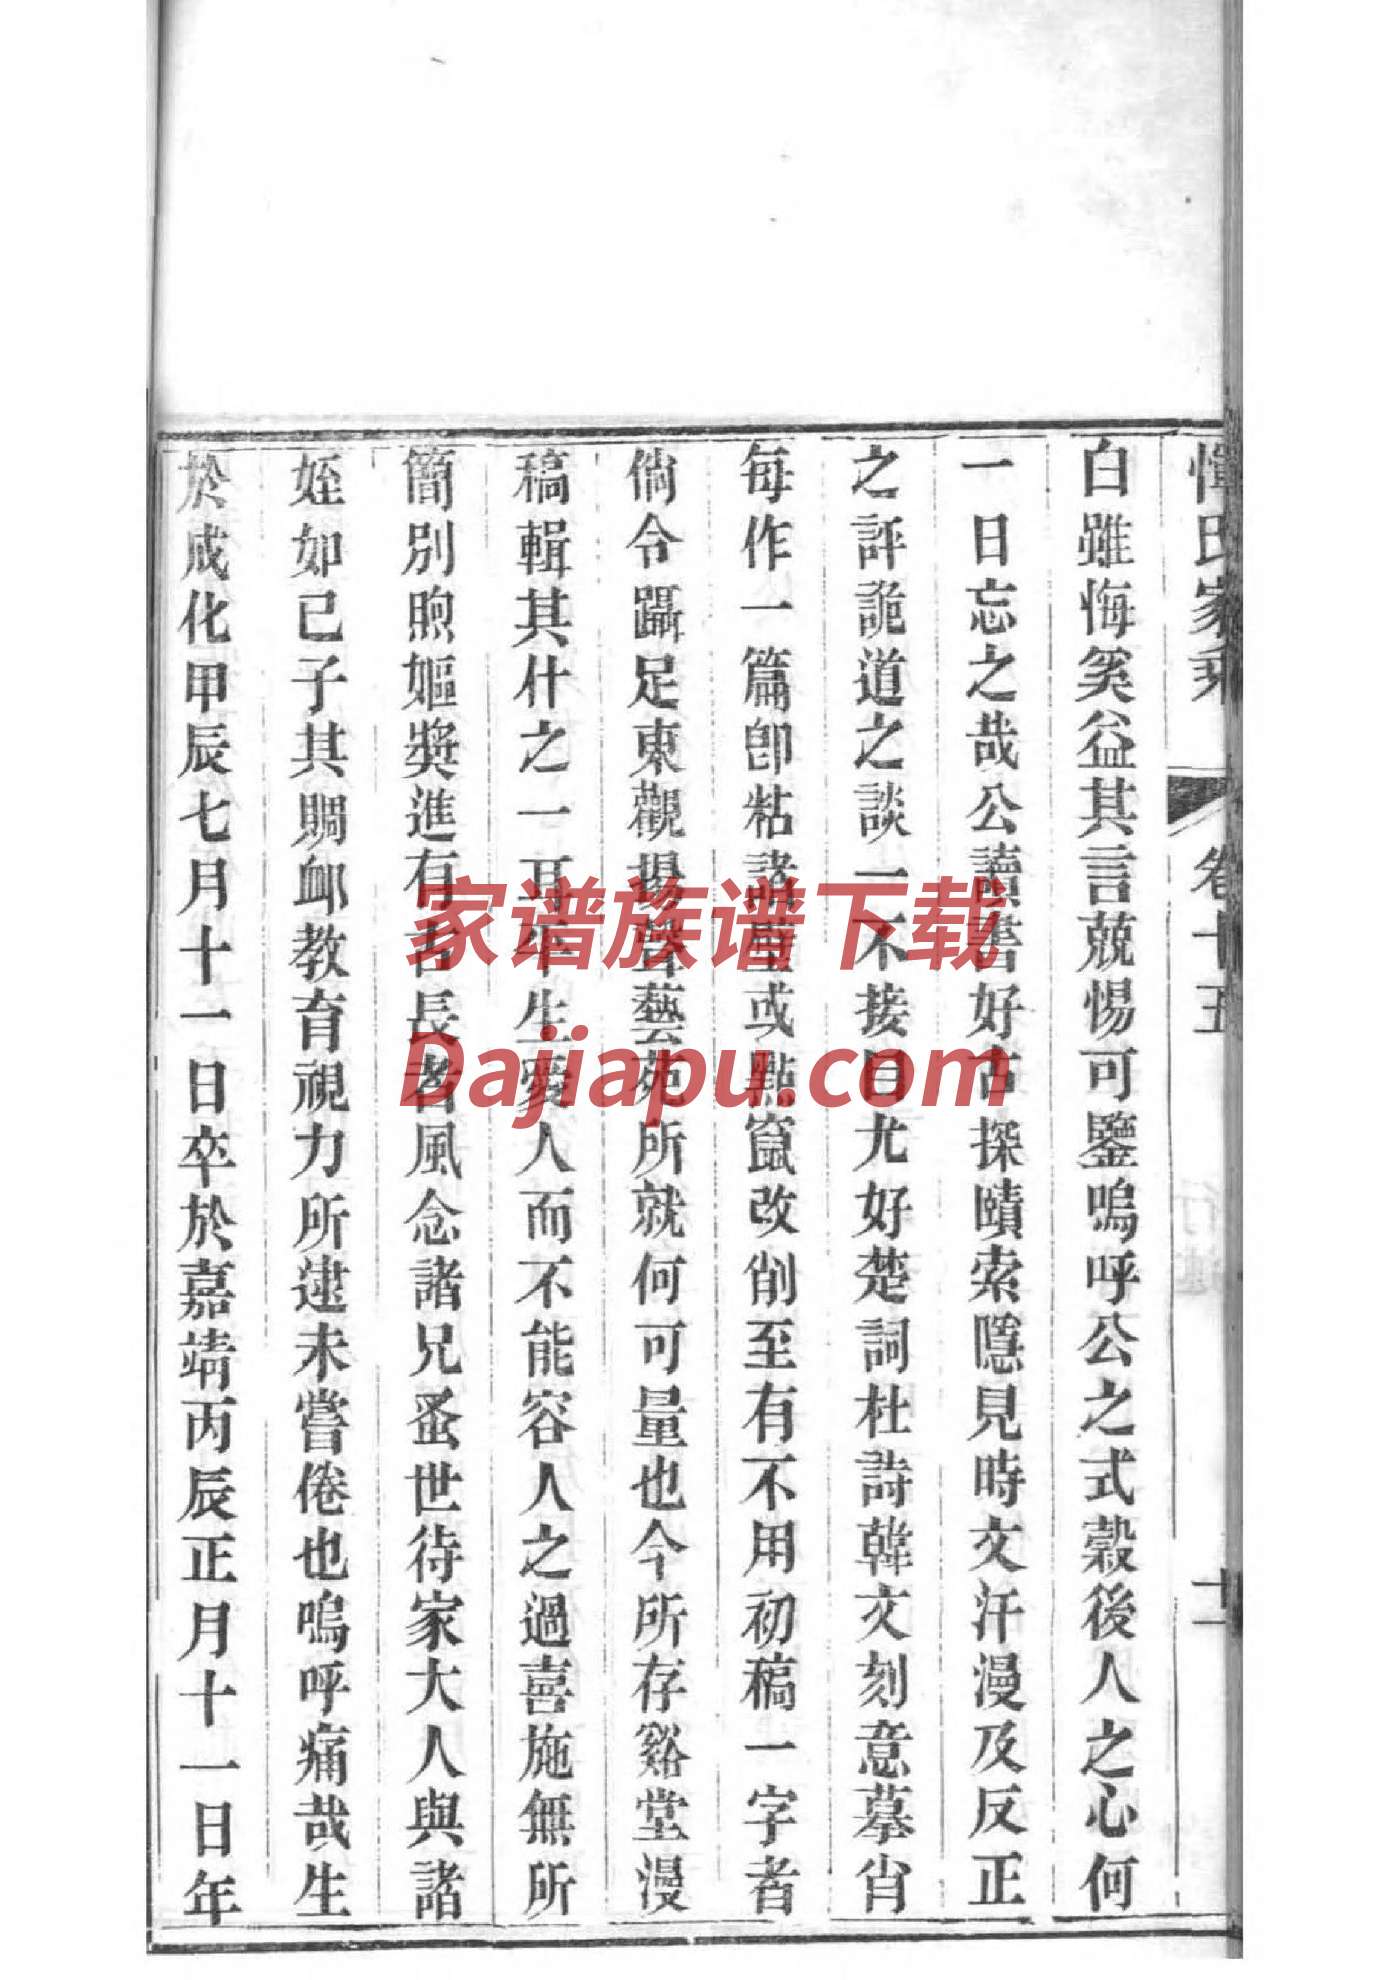 惲氏家乘 卷十五 十一
白雖悔奚益其言兢惕可鑒嗚呼公之式穀後人之心何
一日忘之哉公讀書好古探賾索隱見時文汗漫及反正
之評詭道之談一不接目尤好楚詞杜詩韓文刻意摹肖
每作一篇卽粘諸壁或點竄改削至有不用初稿一字者
倘令躡足東觀揚聲藝苑所就何可量也今所存谿堂漫
稿輯其什之一耳平生愛人而不能容人之過喜施無所
簡別煦嫗獎進有古長者風念諸兄蚤世待家大人與諸
姪如已子其賙卹教育視力所逮未嘗倦也嗚呼痛哉生
於成化甲辰七月十一日卒於嘉靖丙辰正月十一日年
家谱族谱下载
Dajiapu.com